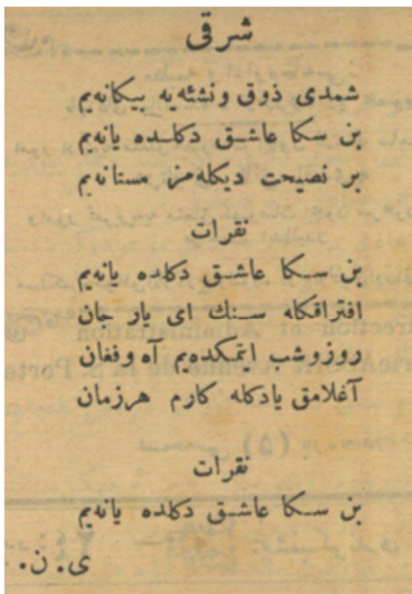 شرقی
شمدی ذوق ونشئه‌یه بیكانه‌یم
بن سكا عاشق دكلده یانه‌یم
بر نصیحت دیكله‌مز مستانه‌یم
نقرات
بن سكا عاشق دكلده یانه‌یم
افتراقكله سنك ای یار جان
روزوشب ایتمكده‌یم آه وفغان
آغلامق یادكله كارم هرزمان
نقرات
بن سكا عاشق دكلده یانه‌یم
ی. ن.